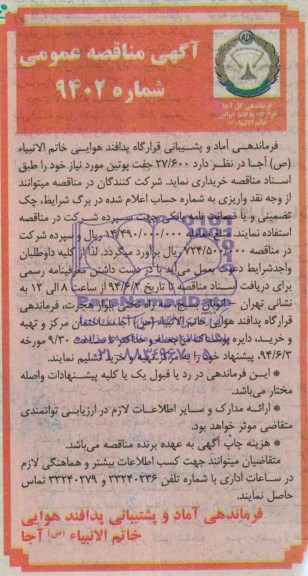 آگهی مناقصه عمومی
شماره ۹۴۰۲
فرماندهی کل آجا
قرارگاه پدافند هوایی
خاتم الانبیاء (ص)
فرماندهی آماد و پشتیبانی قرارگاه پدافند هوایی خاتم الانبیاء
(ص) آجا در نظر دارد ۲۷/۶۰۰ جفت پوتین مورد نیاز خود را طبق
اسناد مناقصه خریداری نماید. شرکت کنندگان در مناقصه میتوانند
از وجه نقد واریزی به شماره حساب اعلام شده در برگ شرایط، چک
تضمینی و یا ضمانت نامه بانکی جهت سپرده شرکت در مناقصه
استفاده نمایند. ۱۴/۴۹۰/۰۰۰/۰۰۰ ریال و سپرده شرکت
در مناقصه ۷۲۴/۵۰۰/۰۰۰ ریال برآورد میگردد. لذا از کلیه داوطلبان
واجد شرایط دعوت بعمل می‌آید با در دست داشتن معرفینامه رسمی
برای دریافت اسناد مناقصه تا تاریخ ۹۴/۶/۲ از ساعت ۸ الی ۱۲ به
نشانی تهران - بلوار هجرت، فرماندهی
قرارگاه پدافند هوایی خاتم الانبیاء (ص) آجا، ساختمان مرکز و تهیه
و خرید، دایره مراجعه و حداکثر تا ساعت ۹/۳۰ مورخه
۹۴/۶/۳ پیشنهاد خود را به خرید تسلیم نمایند.
* این فرماندهی در رد یا قبول یک یا کلیه پیشنهادات واصله
مختار می‌باشد.
* ارائه مدارک و سایر اطلاعات لازم در ارزیابی توانمندی
متقاضی موثر خواهد بود.
* هزینه چاپ آگهی به عهده برنده مناقصه می‌باشد.
متقاضیان میتوانند جهت کسب اطلاعات بیشتر و هماهنگی لازم
در ساعات اداری با شماره تلفن ۳۳۲۴۰۲۳۶ و ۳۳۲۴۰۲۷۹ تماس
حاصل نمایند.
فرماندهی آماد و پشتیبانی پدافند هوایی
خاتم الانبیاء (ص) آجا